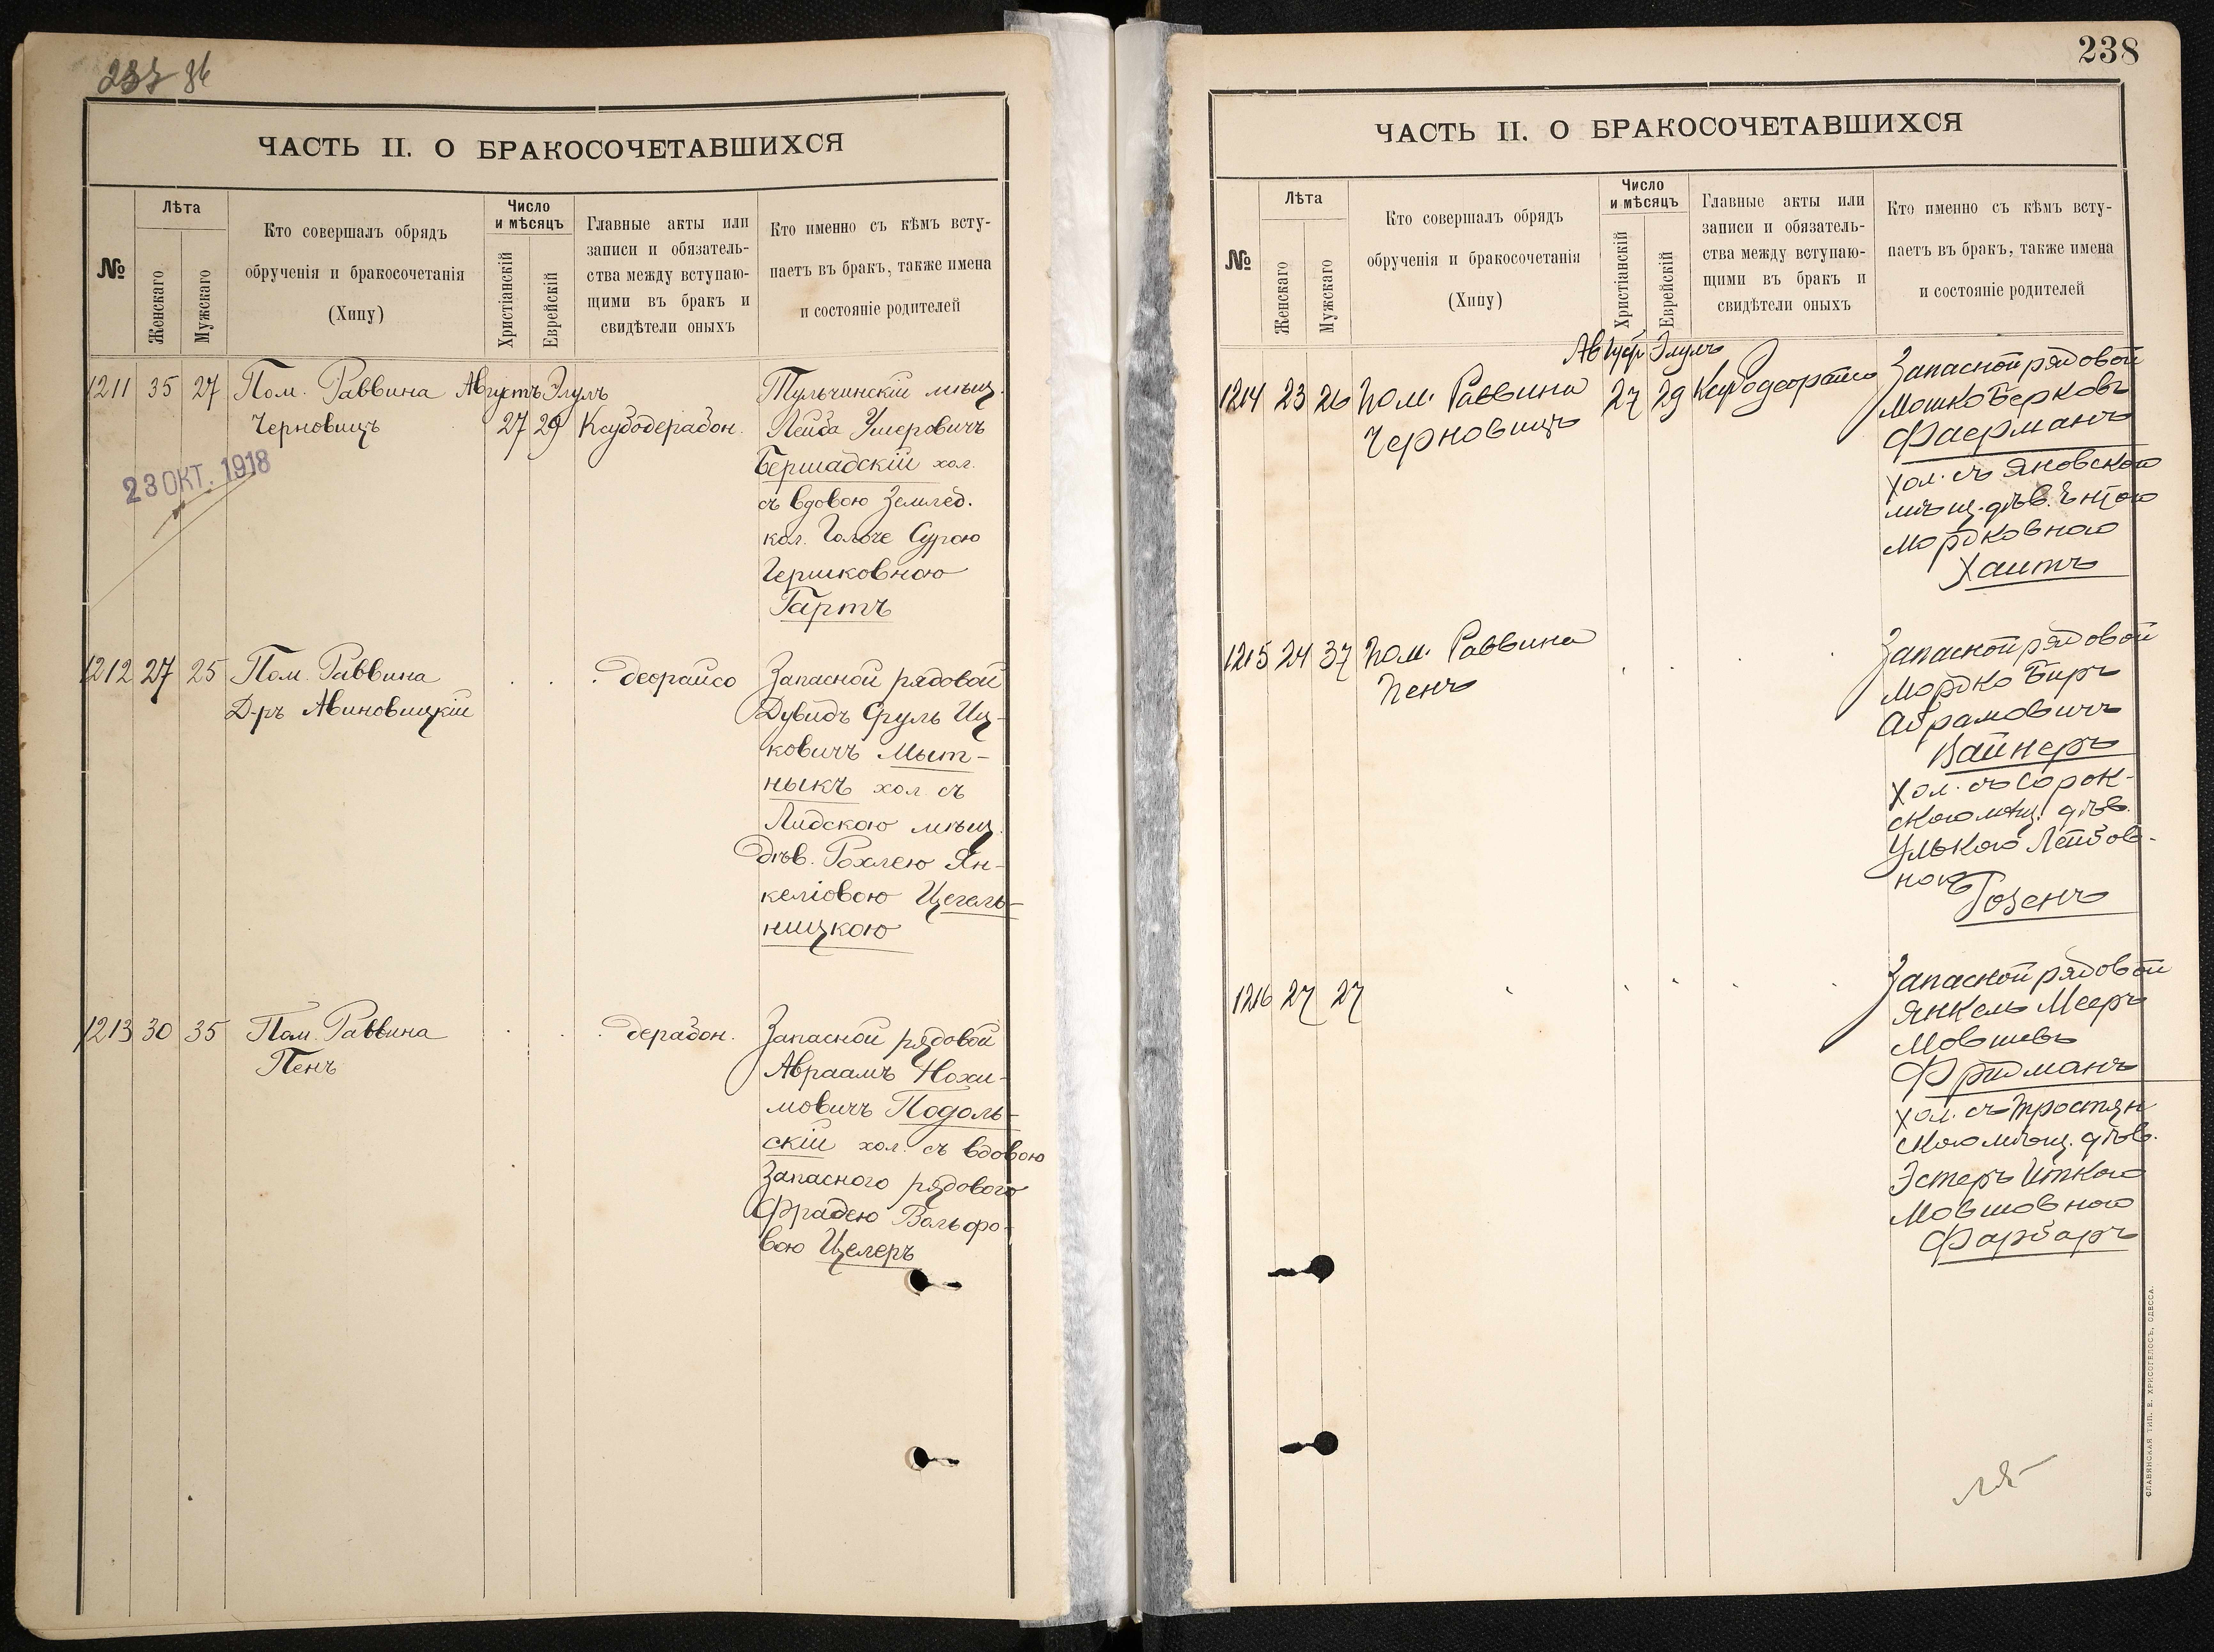 237 86
ЧАСТЬ II. О БРАКОСОЧЕТАВШИХСЯ
№
Лѣта
Женскаго
Мужскаго
Кто совершалъ обрядъ
обрученія и бракосочетанія
(Хипу)
Число
и мѣсяцъ
Христіанскій
Еврейскій
Главные акты или
записи и обязатель-
ства между вступаю-
щими въ бракъ и
свидѣтели оныхъ
Кто именно съ кѣмъ всту-
паетъ въ бракъ, также имена
и состояніе родителей
1211 35 27 Пом. Раввина Августъ Элулъ Тульчинскій мѣщ.
Черновицъ 27 29 Ксубодерабон. Лейба Умеровичъ
23 ОКТ. 1918
Бершадскій хол.
съ вдовою Землед.
кол. Гольче Сурою
Гершковною
Гартъ
1212 27 25 Пом. Раввина деорайсо Запасной рядовой
Д-ръ Авиновицкій Дувидъ Сруль Иц-
ковичъ Мыт-
ныкъ хол. съ
Лидскою мѣщ.
дѣв. Рохлею Ян-
келіовою Цегель-
ницкою
1213 30 35 Пом. Раввина дерабон. Запасной рядовой
Пенъ Авраамъ Нохи-
мовичъ Подоль-
скій хол. съ вдовою
Запасного рядового
Фрадею Вольфо-
вою Целеръ
238
ЧАСТЬ II. О БРАКОСОЧЕТАВШИХСЯ
№
Лѣта
Женскаго
Мужскаго
Кто совершалъ обрядъ
обрученія и бракосочетанія
(Хипу)
Число
и мѣсяцъ
Христіанскій
Еврейскій
Главные акты или
записи и обязатель-
ства между вступаю-
щими въ бракъ и
свидѣтели оныхъ
Кто именно съ кѣмъ всту-
паетъ въ бракъ, также имена
и состояніе родителей
Августъ Элулъ Запасной рядовой
1214 23 26 Пом. Раввина 27 29 Ксубодеорайсо Мошко Берковъ
Черновицъ Фаерманъ
хол. съ Яновскою
мѣщ. дѣв. Энтою
Мордковною
Хаитъ
1215 24 37 Пом. Раввина Запасной рядовой
Пенъ Мордко Беръ
Абрамовичъ
Вайнеръ
хол. съ Сорок-
скою мѣщ. дѣв.
Улькою Лейбов-
ною
Розенъ
1216 27 27 Запасной рядовой
Янкель Мееръ
Мовшевъ
Фридманъ
хол. съ Тростян
скою мѣщ. дѣв.
Эстеръ Иткою
Мовшовною
Фарбаръ
СЛАВЯНСКАЯ ТИП. Е. ХРИСОГЕЛОСЪ, ОДЕССА.